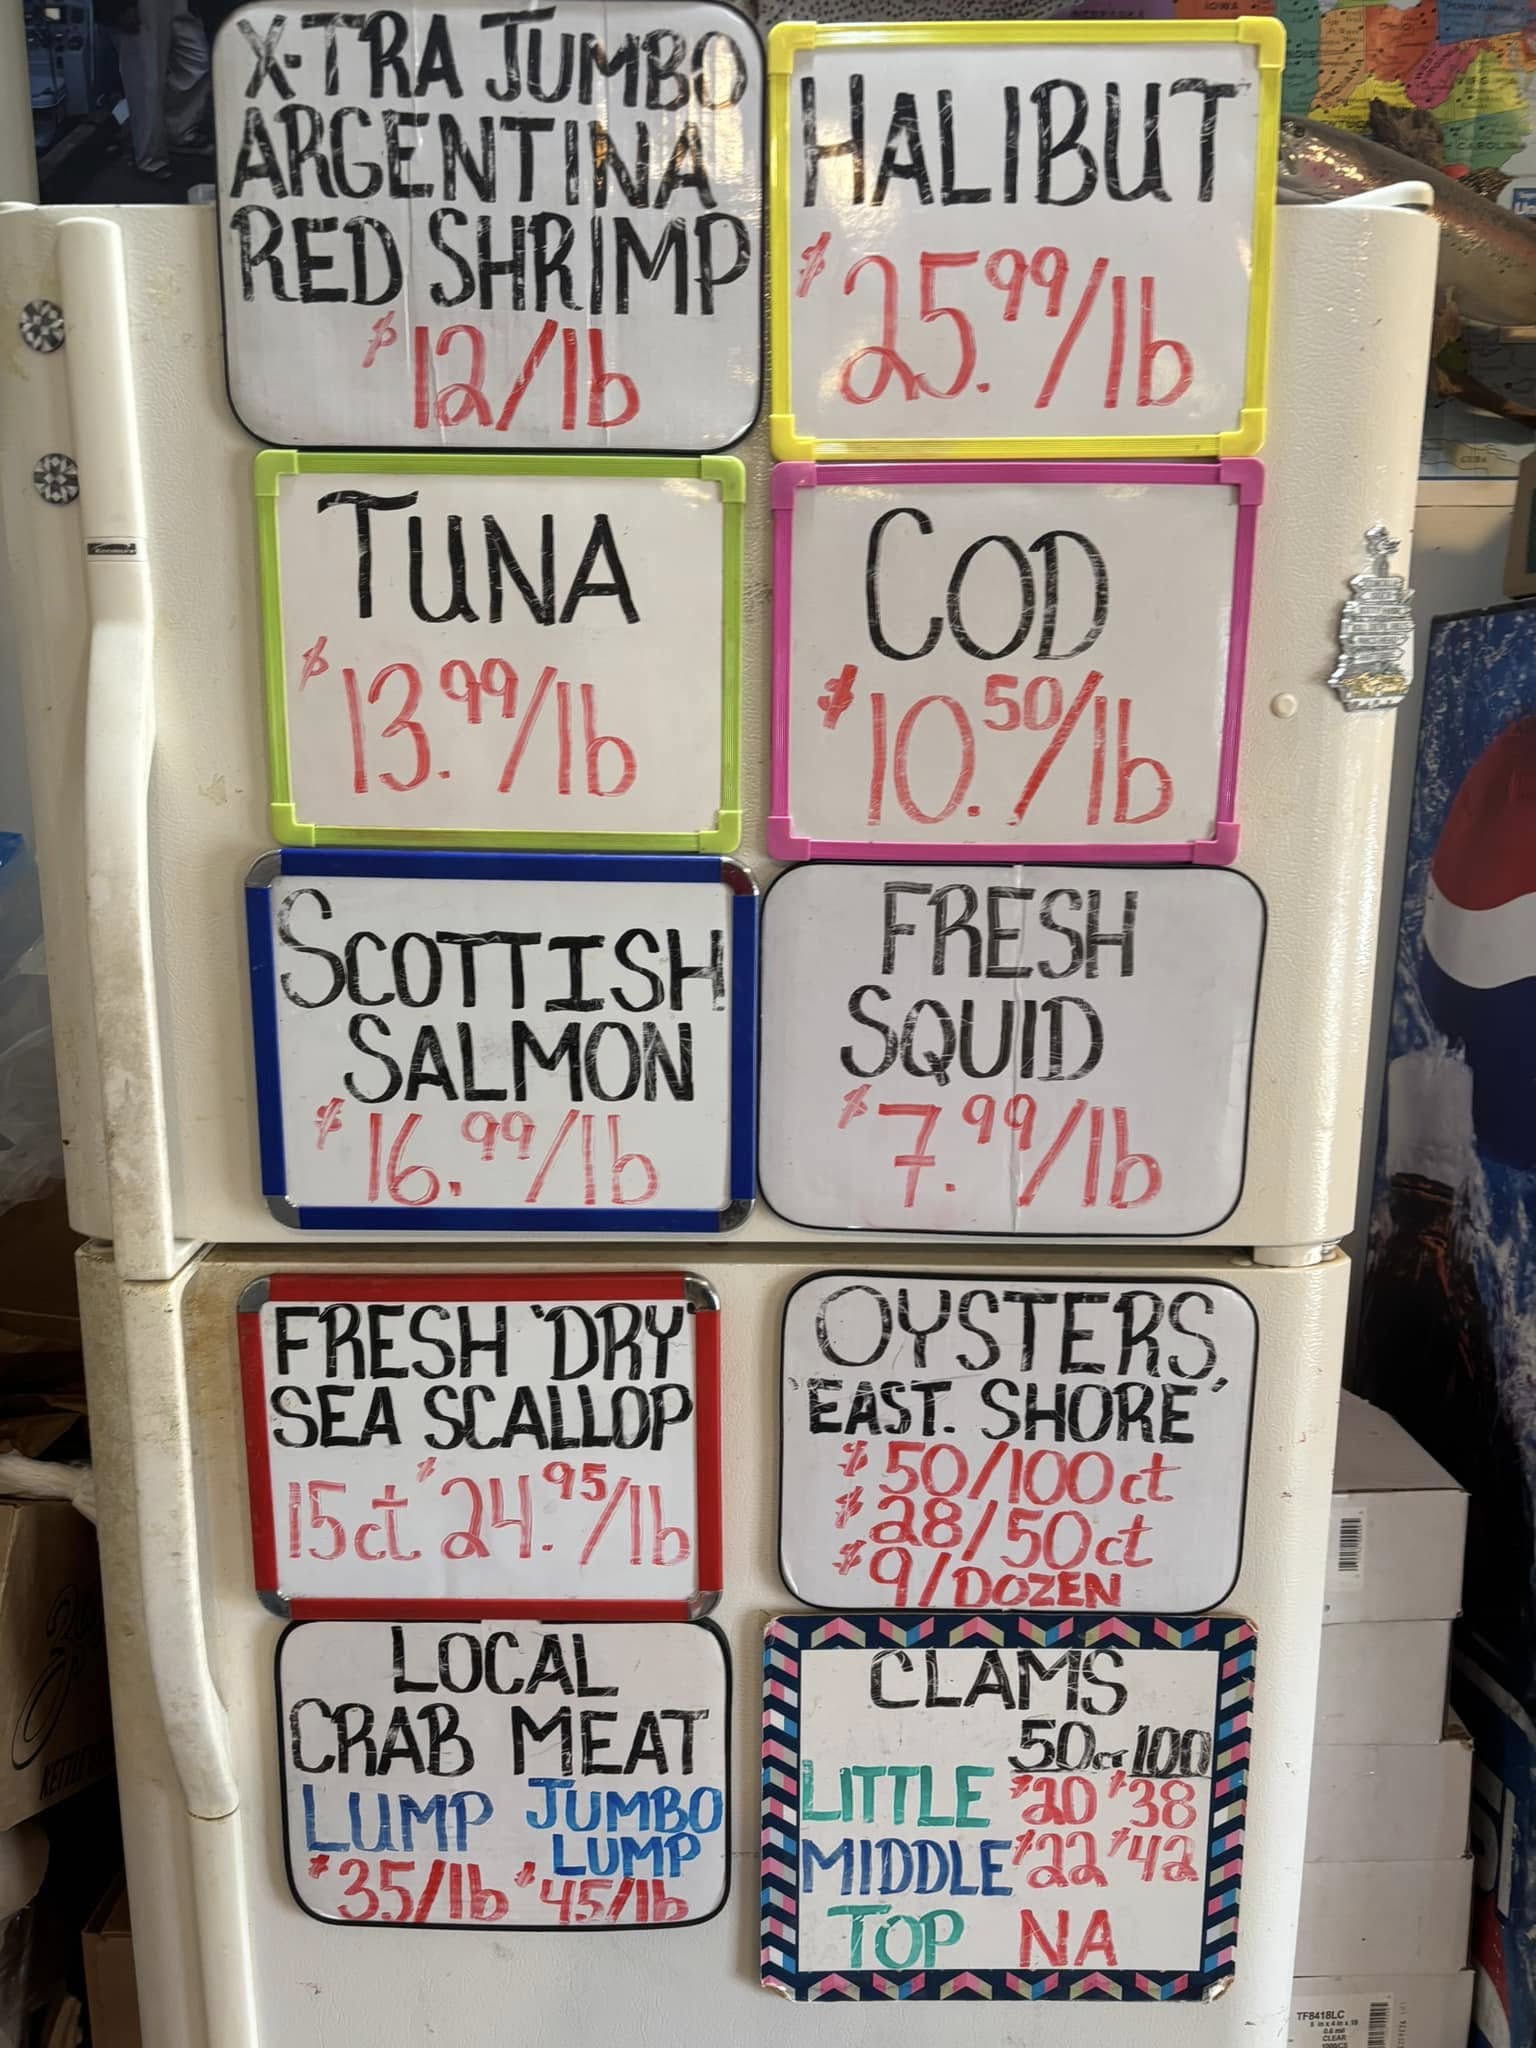 X-TRA JUMBO
ARGENTINA
RED SHRIMP
$12/lb
HALIBUT
$25.99/lb
TUNA
$13.99/lb
COD
$10.50/lb
SCOTTISH
SALMON
$16.99/lb
FRESH
SQUID
$7.99/lb
FRESH 'DRY'
SEA SCALLOP
15ct $24.95/lb
OYSTERS
'EAST. SHORE'
$50/100ct
$28/50ct
$9/DOZEN
LOCAL
CRAB MEAT
LUMP JUMBO LUMP
$35/lb $45/lb
CLAMS
50ct 100
LITTLE $20 $38
MIDDLE $22 $42
TOP NA
IOWA
CUBA
TF8418LC
CLEAR